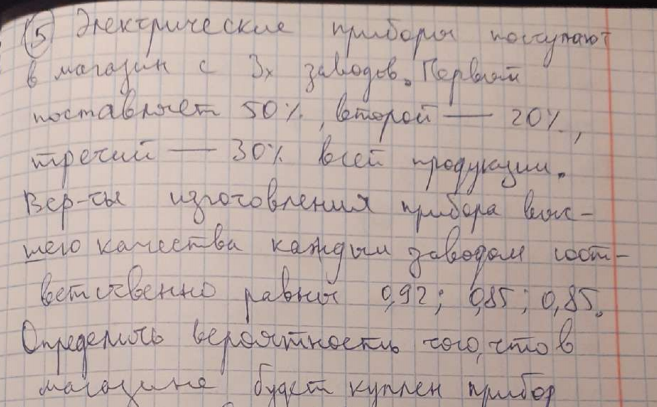 5 Электрические приборы поступают
в магазин с 3х заводов. Первый
поставляет 50%, второй — 20%,
третий — 30% всей продукции.
Вер-ты изготовления прибора выс-
шего качества каждым заводом соот-
ветственно равны 0,92; 0,85; 0,85.
Определить вероятность того, что в
магазине будет куплен прибор